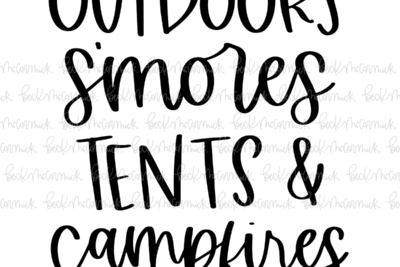 OUTDOORS
s'mores
TENTS &
campfires